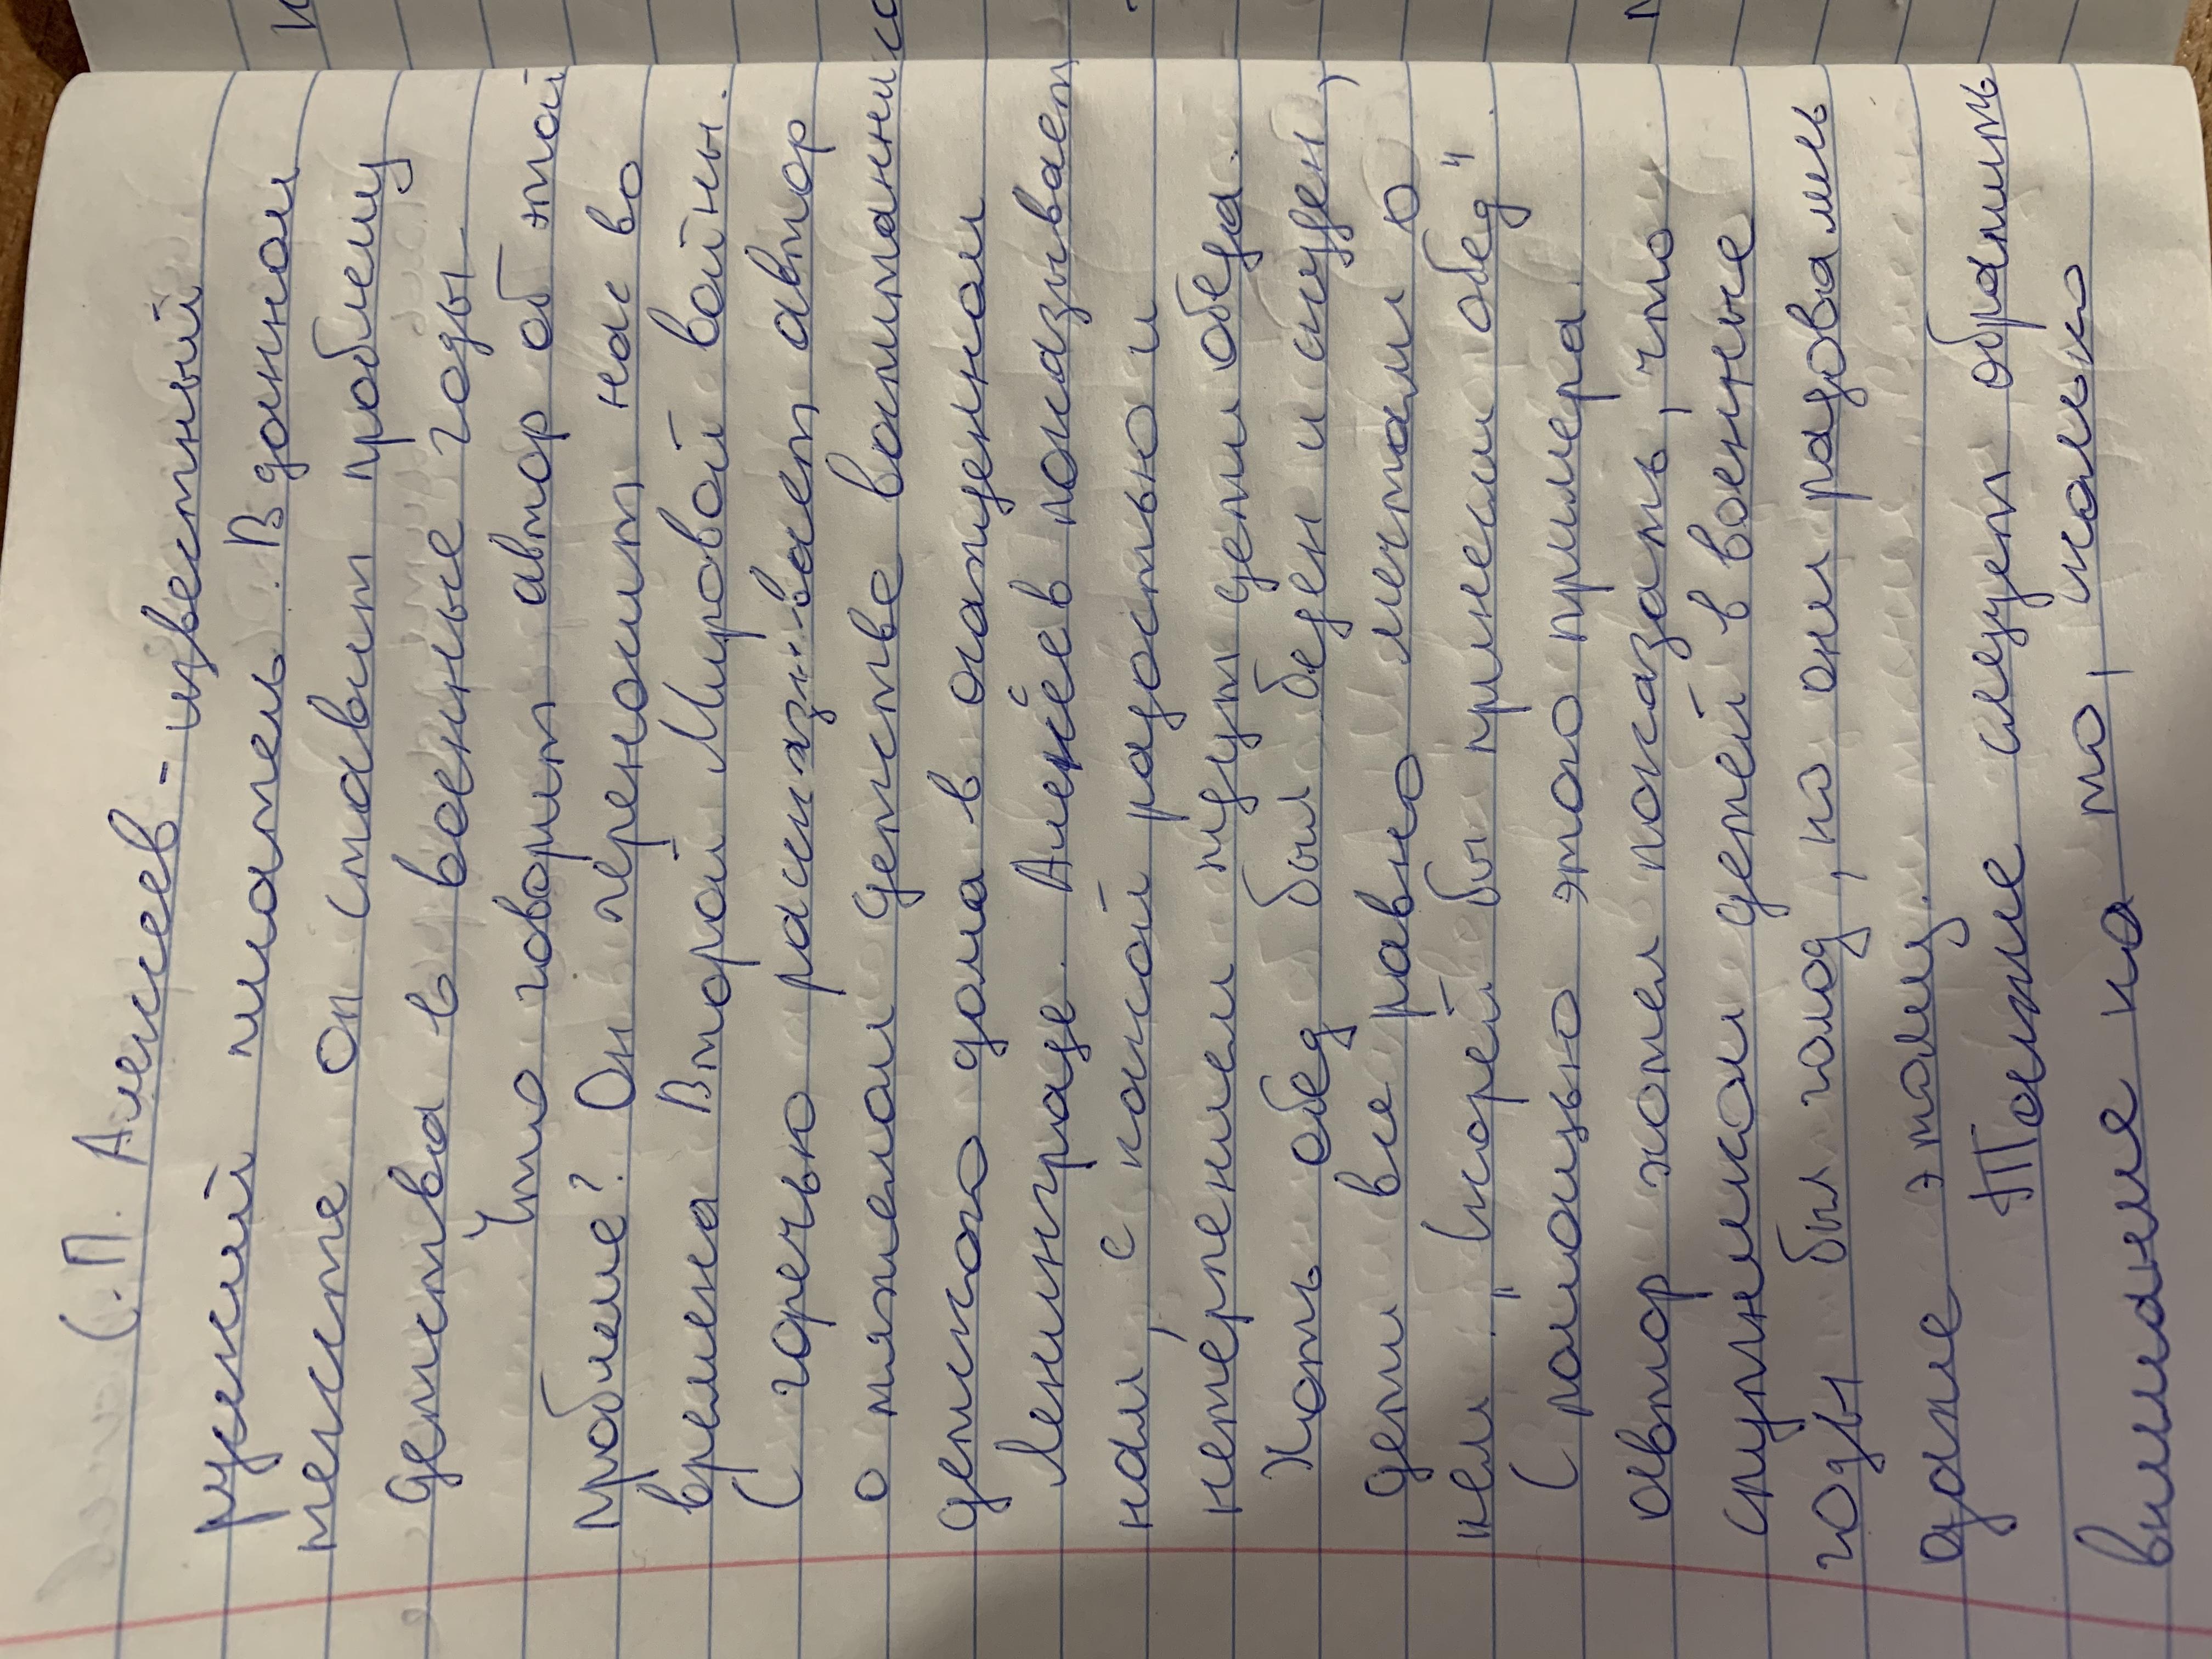 С. П. Алексеев - известный
русский писатель. В данном
тексте он ставит проблему
детства в военные годы.
Что говорит автор об этой
проблеме? Он переносит нас во
времена Второй Мировой войны.
С горечью рассказывает автор
о тяжелом детстве воспитаннико
детского дома в осажденном
Ленинграде. Алексеев показывает
нам, с какой радостью и
нетерпением ждут дети обеда.
Хоть обед был беден и скуден,
дети все равно мечтали о
нем. "Скорей бы принесли обед".
С помощью этого примера
автор хотел показать, что
спутником детей в военные
годы был голод, но они радовались
даже этому.
Также следует обратить
внимание на то, сколько